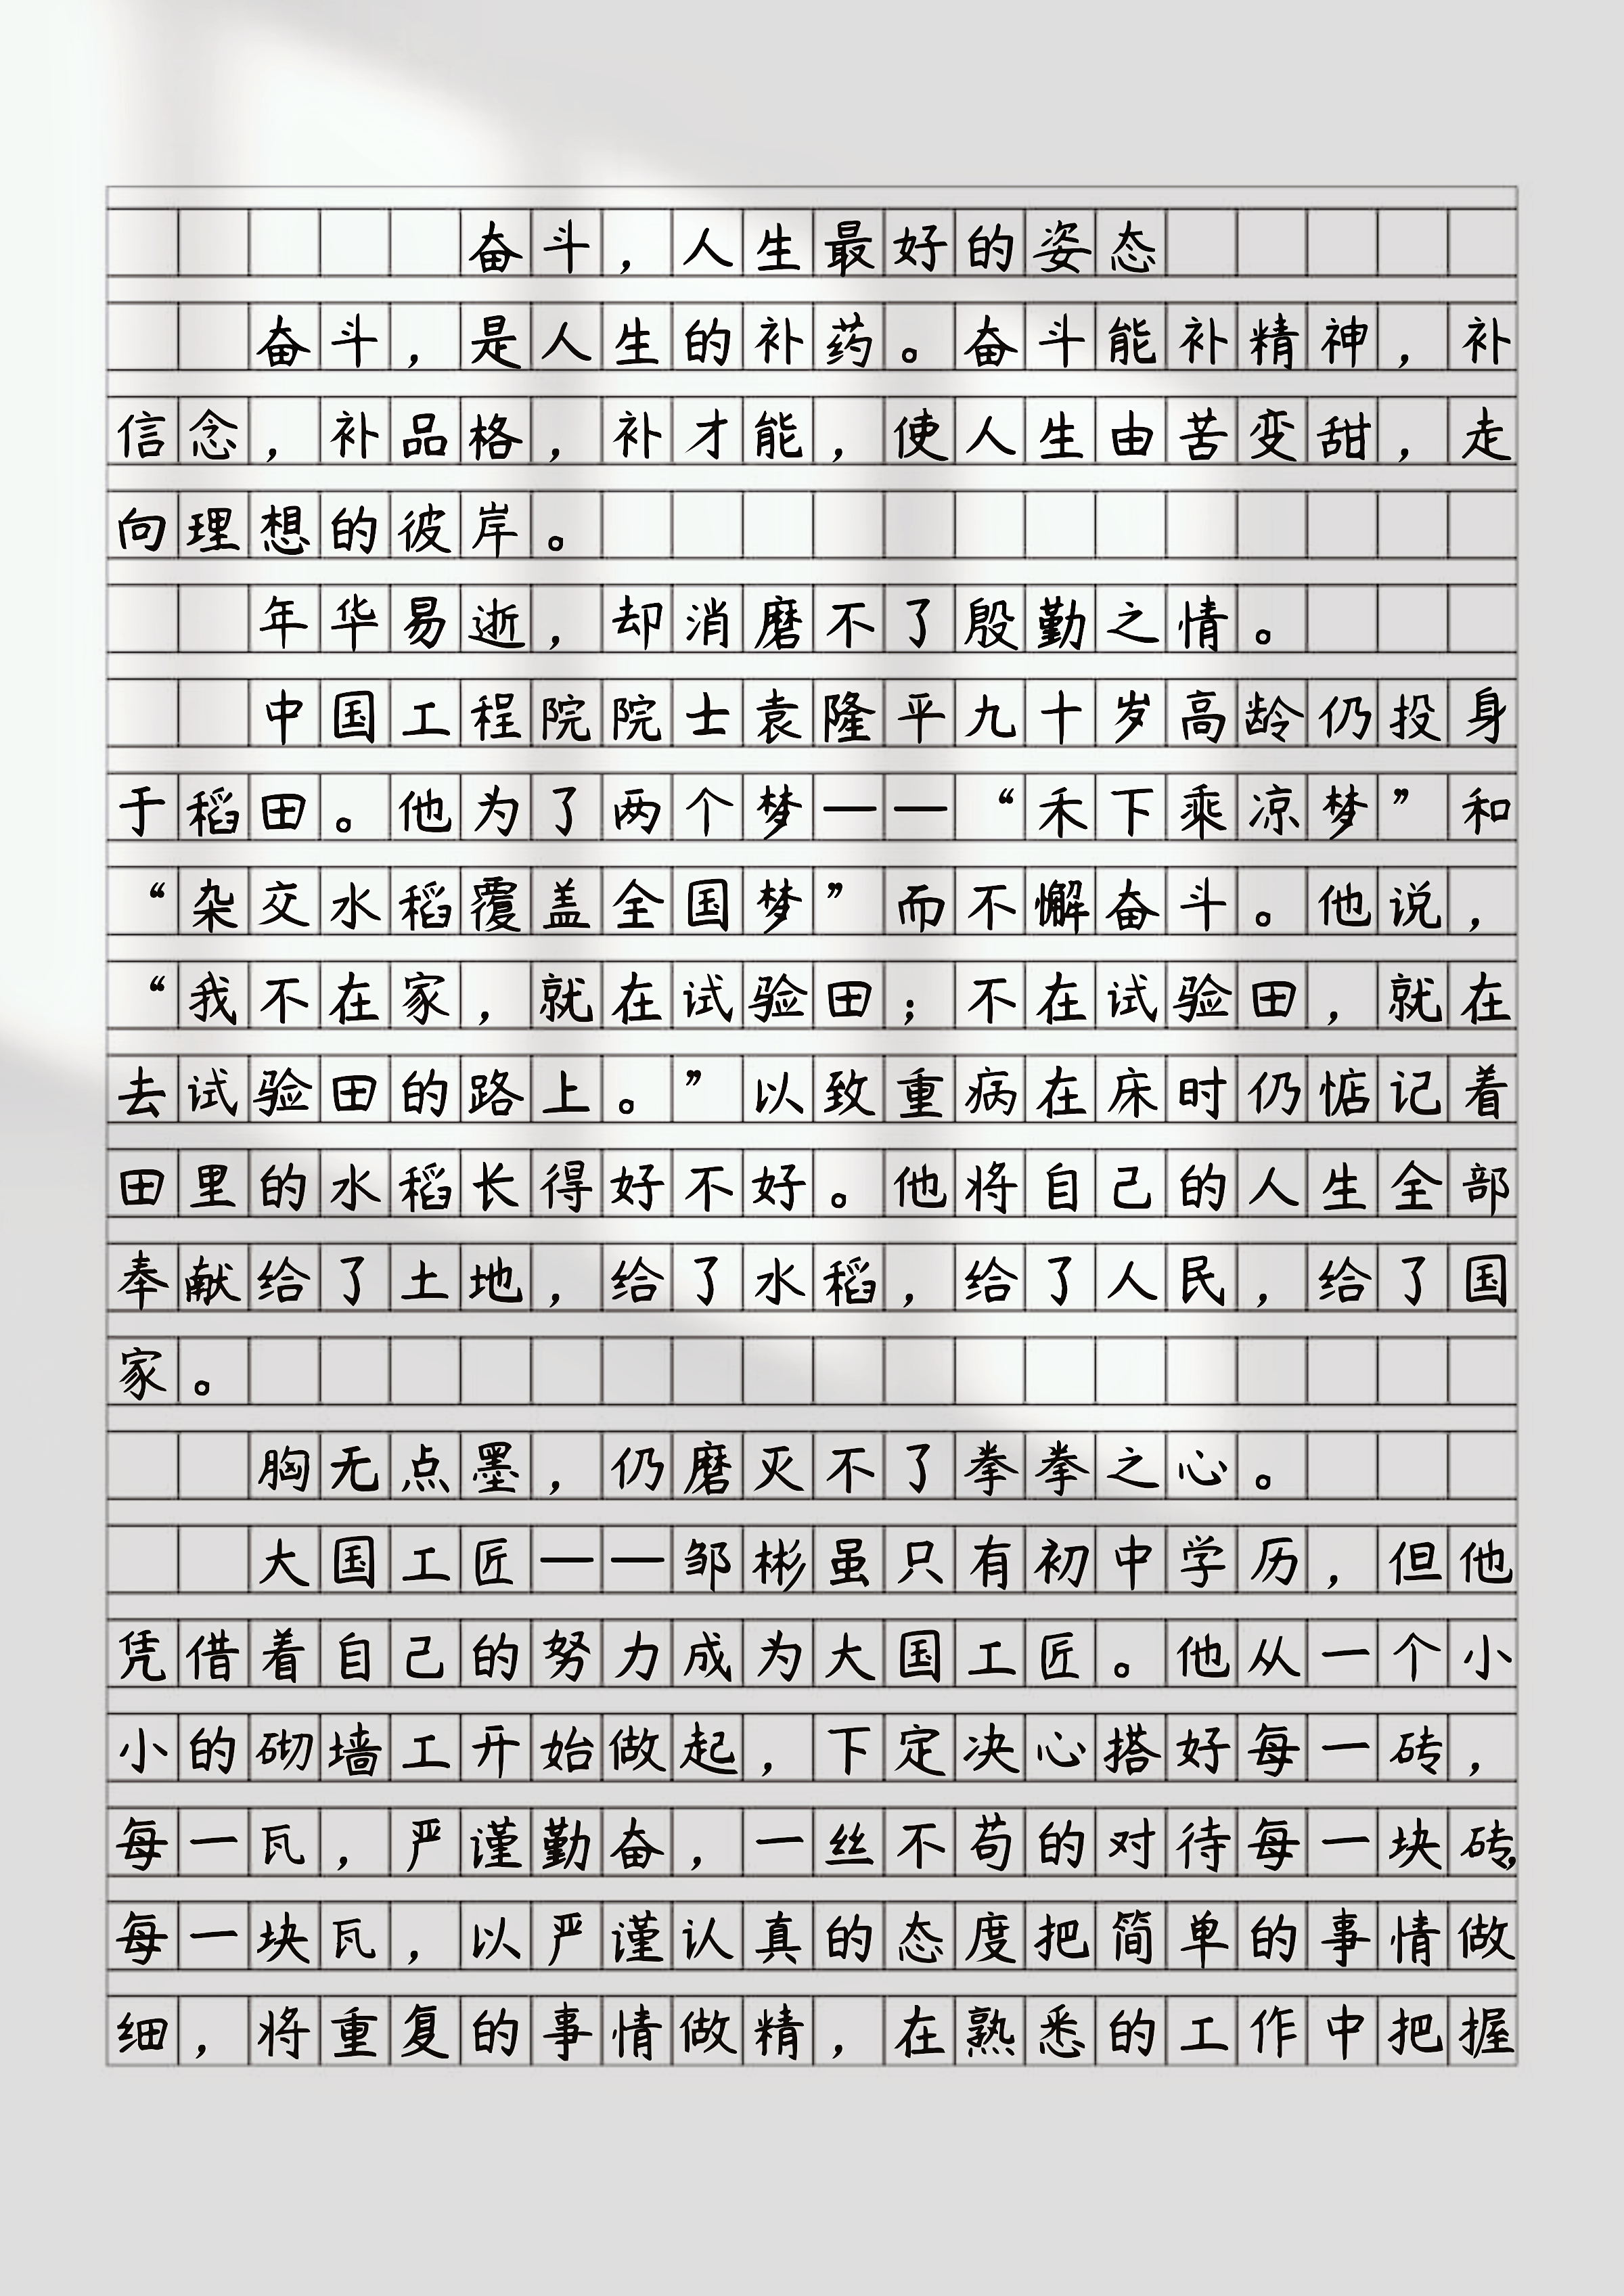 奋斗，人生最好的姿态
奋斗，是人生的补药。奋斗能补精神，补
信念，补品格，补才能，使人生由苦变甜，走
向理想的彼岸。
年华易逝，却消磨不了殷勤之情。
中国工程院院士袁隆平九十岁高龄仍投身
于稻田。他为了两个梦——“禾下乘凉梦”和
“杂交水稻覆盖全国梦”而不懈奋斗。他说，
“我不在家，就在试验田；不在试验田，就在
去试验田的路上。”以致重病在床时仍惦记着
田里的水稻长得好不好。他将自己的人生全部
奉献给了土地，给了水稻，给了人民，给了国
家。
胸无点墨，仍磨灭不了拳拳之心。
大国工匠——邹彬虽只有初中学历，但他
凭借着自己的努力成为大国工匠。他从一个小
小的砌墙工开始做起，下定决心搭好每一砖，
每一瓦，严谨勤奋，一丝不苟的对待每一块砖，
每一块瓦，以严谨认真的态度把简单的事情做
细，将重复的事情做精，在熟悉的工作中把握